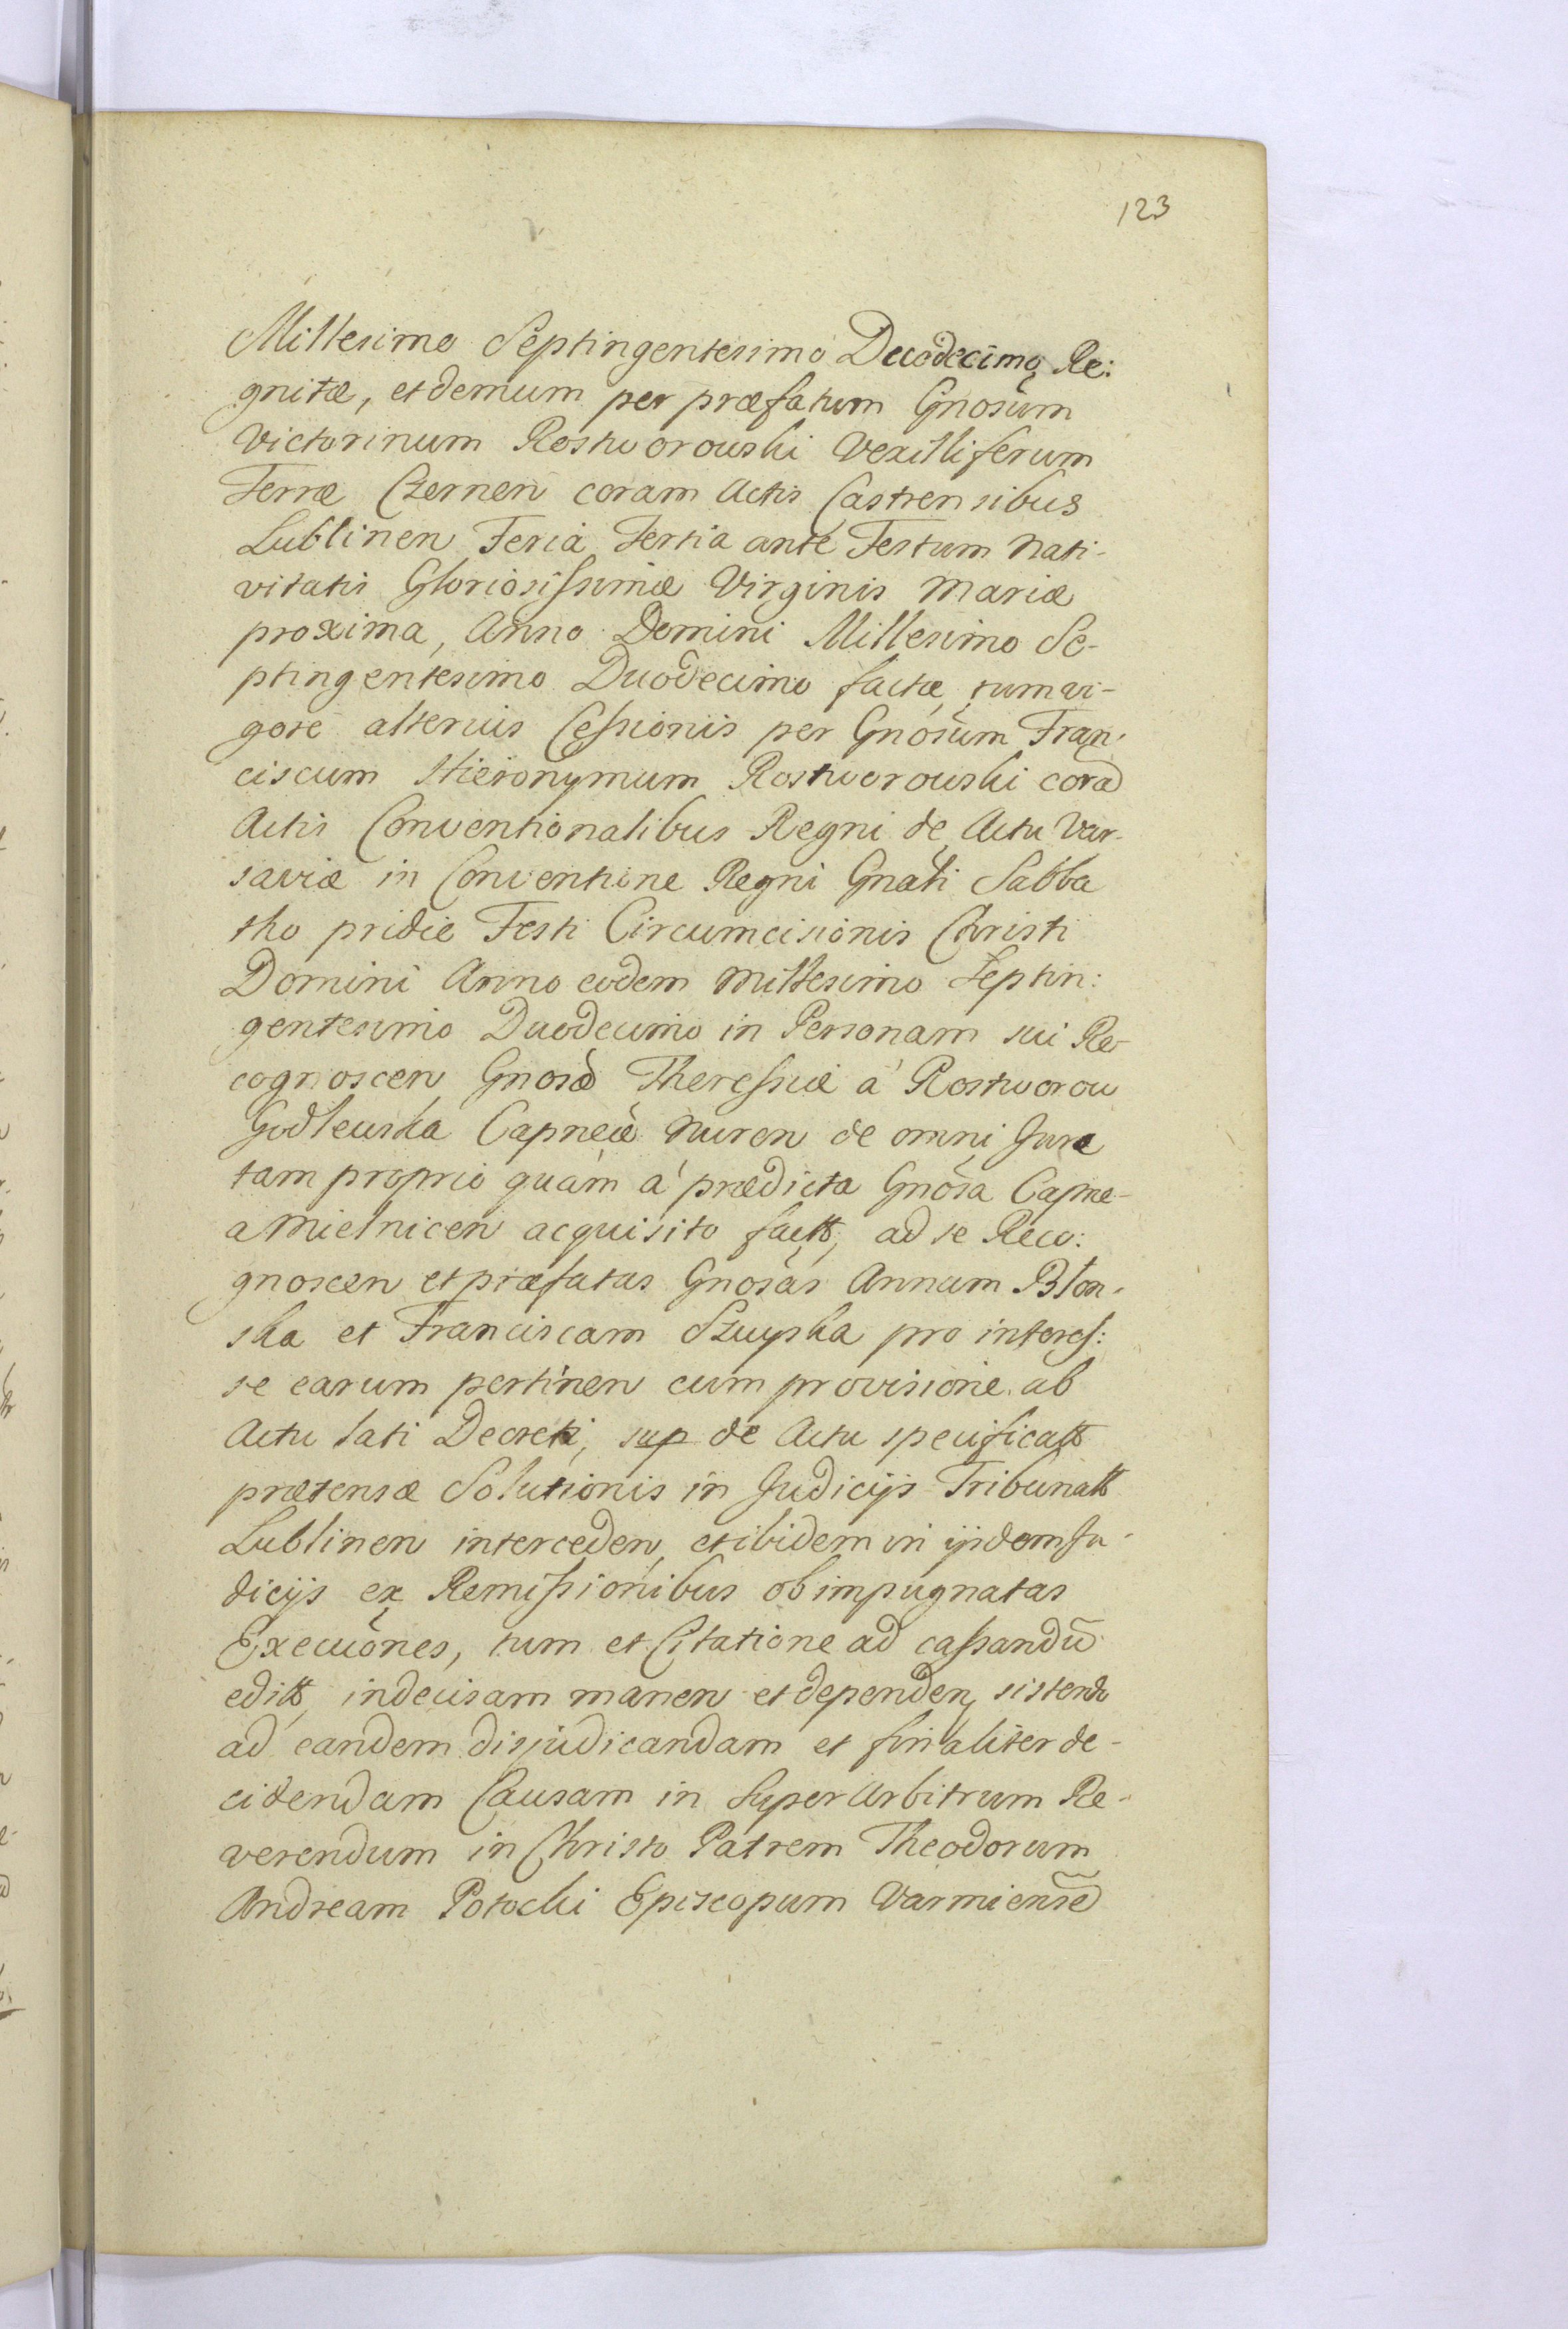 123
Millesimo Septingentesimo Duodecimo Re:
gnitæ, et demum per præfatum Gnosum
Victorinum Rostworowski Vexilliferum
Terræ Czernen coram Actis Castrensibus
Lublinen Feria Tertia ante Festum Nati-
vitatis Gloriosissimæ Virginis Mariæ
proxima, Anno Domini Millesimo Se-
ptingentesimo Duodecimo factæ, tum vi-
gore alterius Cessionis per Gnosum Fran-
ciscum Hieronymum Rostworowski corã
Actis Conventionalibus Regni de Actu Var-
saviæ in Conventione Regni Gnali Sabba
tho pridie Festi Circumcisionis Christi
Domini Anno eodem Millesimo Septin:
gentesimo Duodecimo in Personam sui Re-
cognoscen Gnosæ Theressiæ à Rostworow
Godlewska Capneæ Nuren de omni Jure
tam proprio quàm à prædicta Gnosa Capne-
a Mielnicen acquisito factæ, ad se Reco:
gnoscen et præfatas Gnosas Annam Blon-
ska et Franciscam Szuyska pro interes:
se earum pertinen cum provisione ab
Actu lati Decreti, sup de Actu specificatæ
prætensæ Solutionis in Judicijs Tribunalb
Lublinen interceden, et ibidem in ijsdem Ju-
dicijs ex Remissionibus ob impugnatas
Execuones, tum et Citatione ad cassandũ
edita, indecisam manen et dependen, sistendo
ad eandem disjudicandam et finaliter de-
cidendam Causam in Super Arbitrum Re-
verendum in Christo Patrem Theodorum
Andream Potocki Episcopum Varmiensẽ